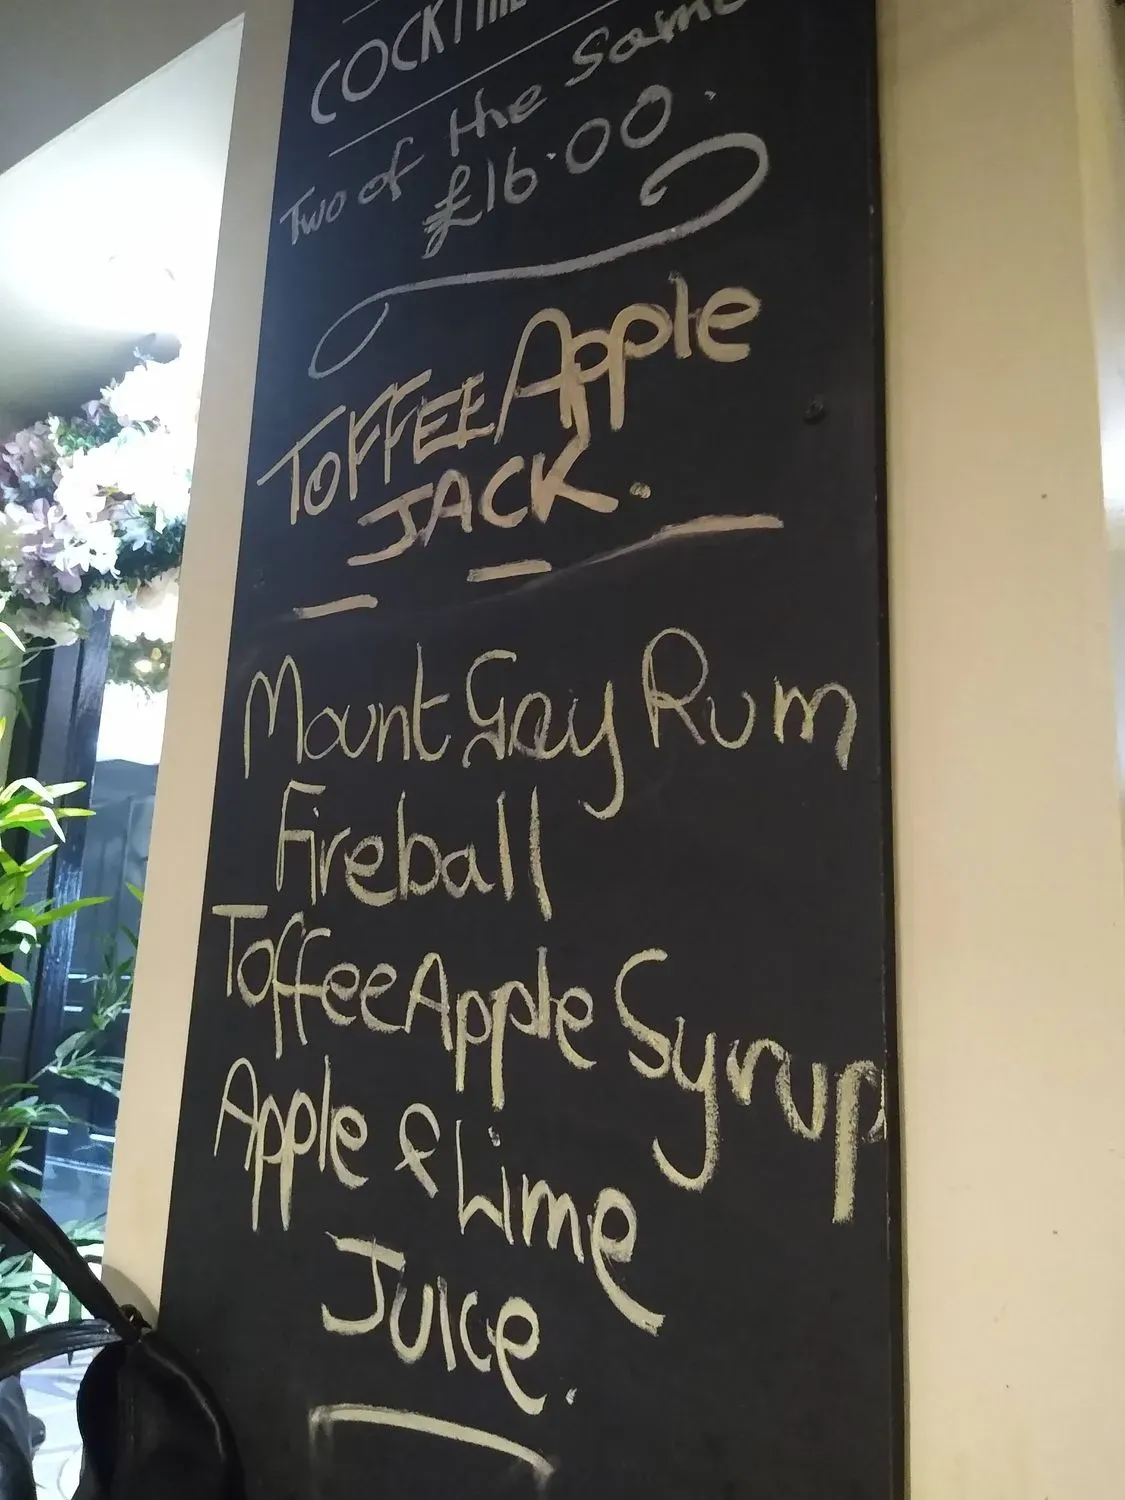 COCKTAIL
Two of the Same
£16.00.
TOFFEE Apple
JACK.
Mount Gay Rum
Fireball
Toffee Apple Syrup
Apple & Lime
Juice.